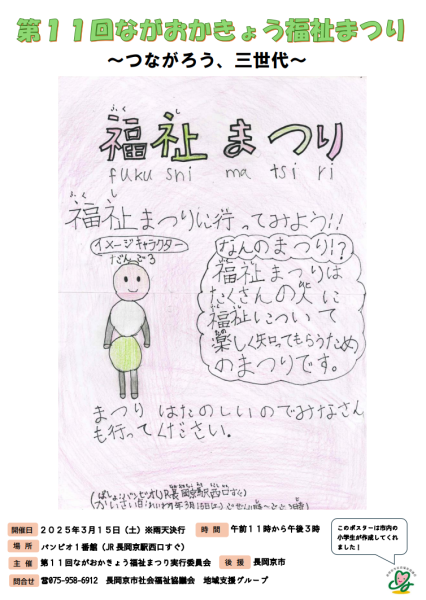 第１１回ながおかきょう福祉まつり
～つながろう、三世代～
ふく し
福祉まつり
fuku shi ma tsi ri
ふく し
福祉まつりに行ってみよう!!
イメージキャラクター
だんご3
なんのまつり!?
福祉まつりは
たくさんの人に
福祉について
楽しく知ってもらうため
のまつりです。
まつりはたのしいのでみなさん
も行ってください。
開催日 ２０２５年３月１５日（土）※雨天決行 時間 午前１１時から午後３時
場所 バンビオ１番館（JR長岡京駅西口すぐ）
主催 第１１回ながおかきょう福祉まつり実行委員会 後援 長岡京市
問合せ ☎075-958-6912 長岡京市社会福祉協議会 地域支援グループ
このポスターは市内の
小学生が作成してくれ
ました！